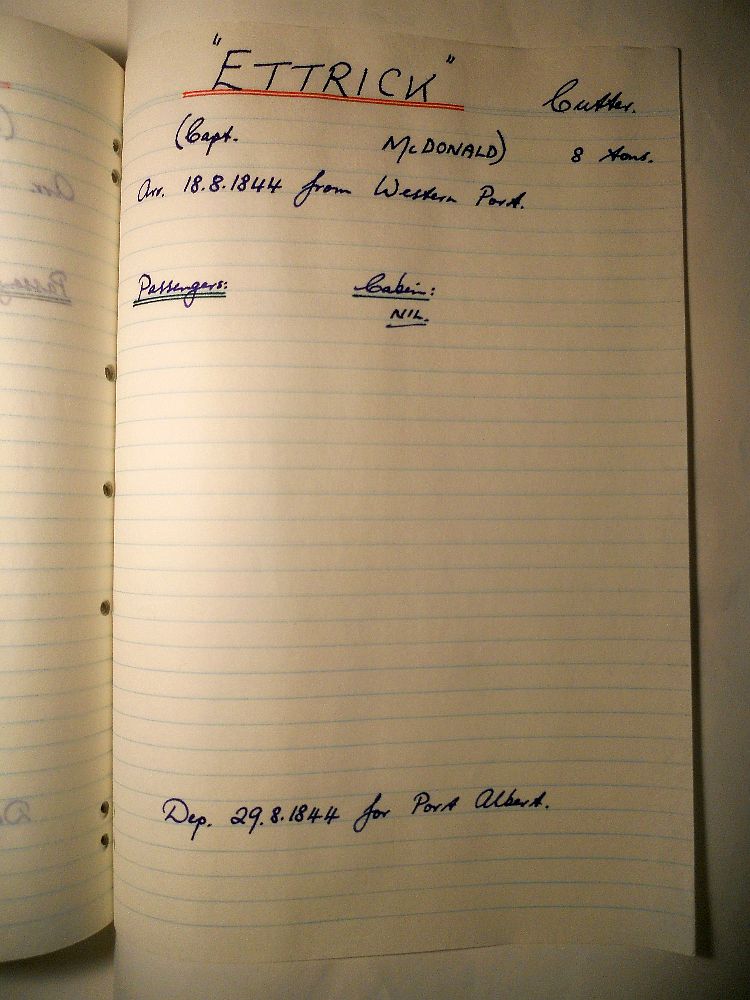 "ETTRICK" Cutter.
(Capt. McDONALD) 8 tons.
Arr. 18.8.1844 from Western Port.
Passengers: Cabin:
NIL.
Dep. 29.8.1844 for Port Albert.